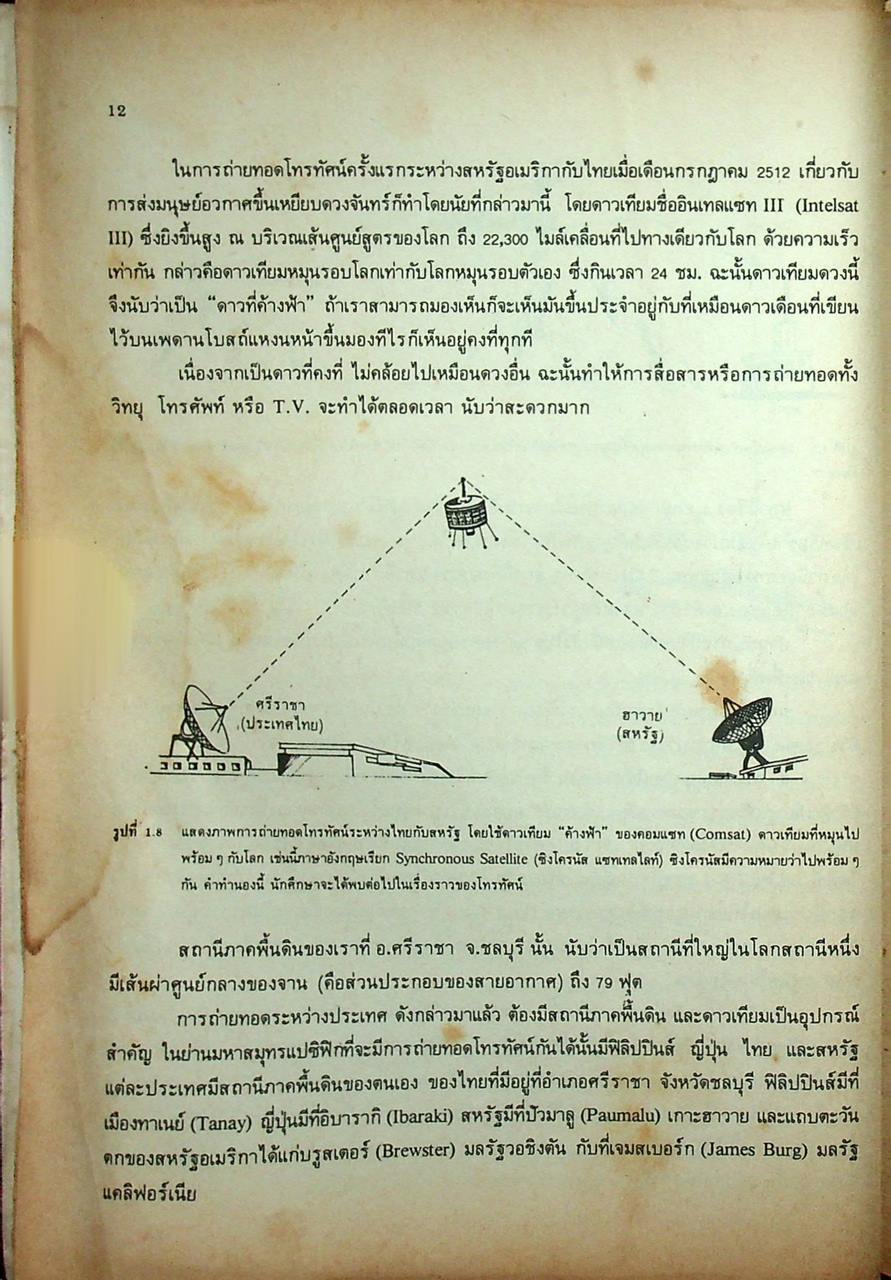 12
ในการถ่ายทอดโทรทัศน์ครั้งแรกระหว่างสหรัฐอเมริกากับไทยเมื่อเดือนกรกฎาคม 2512 เกี่ยวกับ
การส่งมนุษย์อวกาศขึ้นเหยียบดวงจันทร์ก็ทำโดยนัยที่กล่าวมานี้ โดยดาวเทียมชื่ออินเทลแซท III (Intelsat
III) ซึ่งยิงขึ้นสูง ณ บริเวณเส้นศูนย์สูตรของโลก ถึง 22,300 ไมล์เคลื่อนที่ไปทางเดียวกับโลก ด้วยความเร็ว
เท่ากัน กล่าวคือดาวเทียมหมุนรอบโลกเท่ากับโลกหมุนรอบตัวเอง ซึ่งกินเวลา 24 ชม. ฉะนั้นดาวเทียมดวงนี้
จึงนับว่าเป็น “ดาวที่ค้างฟ้า” ถ้าเราสามารถมองเห็นก็จะเห็นมันขึ้นประจำอยู่กับที่เหมือนดาวเดือนที่เขียน
ไว้บนเพดานโบสถ์แหงนหน้าขึ้นมองทีไรก็เห็นอยู่คงที่ทุกที
เนื่องจากเป็นดาวที่คงที่ ไม่คล้อยไปเหมือนดวงอื่น ฉะนั้นทำให้การสื่อสารหรือการถ่ายทอดทั้ง
วิทยุ โทรศัพท์ หรือ T.V. จะทำได้ตลอดเวลา นับว่าสะดวกมาก
ศรีราชา
(ประเทศไทย)
ฮาวาย
(สหรัฐ)
รูปที่ 1.8 แสดงภาพการถ่ายทอดโทรทัศน์ระหว่างไทยกับสหรัฐ โดยใช้ดาวเทียม “ค้างฟ้า” ของคอมแซท (Comsat) ดาวเทียมที่หมุนไป
พร้อม ๆ กับโลก เช่นนี้ภาษาอังกฤษเรียก Synchronous Satellite (ซิงโครนัส แซทเทลไลท์) ซิงโครนัสมีความหมายว่าไปพร้อม ๆ
กัน คำทำนองนี้ นักศึกษาจะได้พบต่อไปในเรื่องราวของโทรทัศน์
สถานีภาคพื้นดินของเราที่ อ.ศรีราชา จ.ชลบุรี นั้น นับว่าเป็นสถานีที่ใหญ่ในโลกสถานีหนึ่ง
มีเส้นผ่าศูนย์กลางของจาน (คือส่วนประกอบของสายอากาศ) ถึง 79 ฟุต
การถ่ายทอดระหว่างประเทศ ดังกล่าวมาแล้ว ต้องมีสถานีภาคพื้นดิน และดาวเทียมเป็นอุปกรณ์
สำคัญ ในย่านมหาสมุทรแปซิฟิกที่จะมีการถ่ายทอดโทรทัศน์กันได้นั้นมีฟิลิปปินส์ ญี่ปุ่น ไทย และสหรัฐ
แต่ละประเทศมีสถานีภาคพื้นดินของตนเอง ของไทยที่มีอยู่ที่อำเภอศรีราชา จังหวัดชลบุรี ฟิลิปปินส์มีที่
เมืองทาเนย์ (Tanay) ญี่ปุ่นมีที่อิบารากิ (Ibaraki) สหรัฐมีที่ปัวมาลู (Paumalu) เกาะฮาวาย และแถบตะวัน
ตกของสหรัฐอเมริกาได้แก่บรูสเตอร์ (Brewster) มลรัฐวอชิงตัน กับที่เจมสเบอร์ก (James Burg) มลรัฐ
แคลิฟอร์เนีย